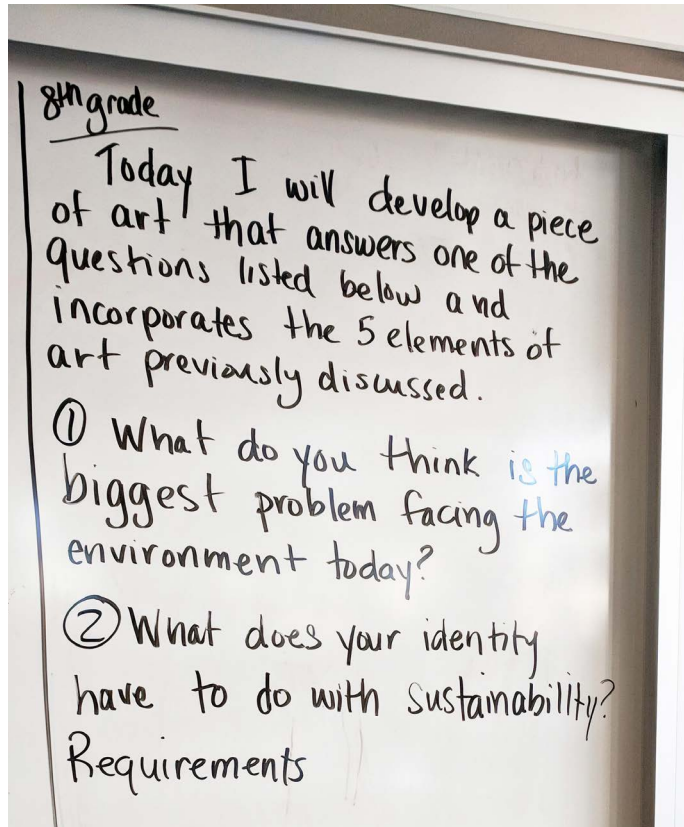 8th grade
Today I will develop a piece
of art that answers one of the
questions listed below and
incorporates the 5 elements of
art previously discussed.
① What do you think is the
biggest problem facing the
environment today?
② What does your identity
have to do with sustainability?
Requirements